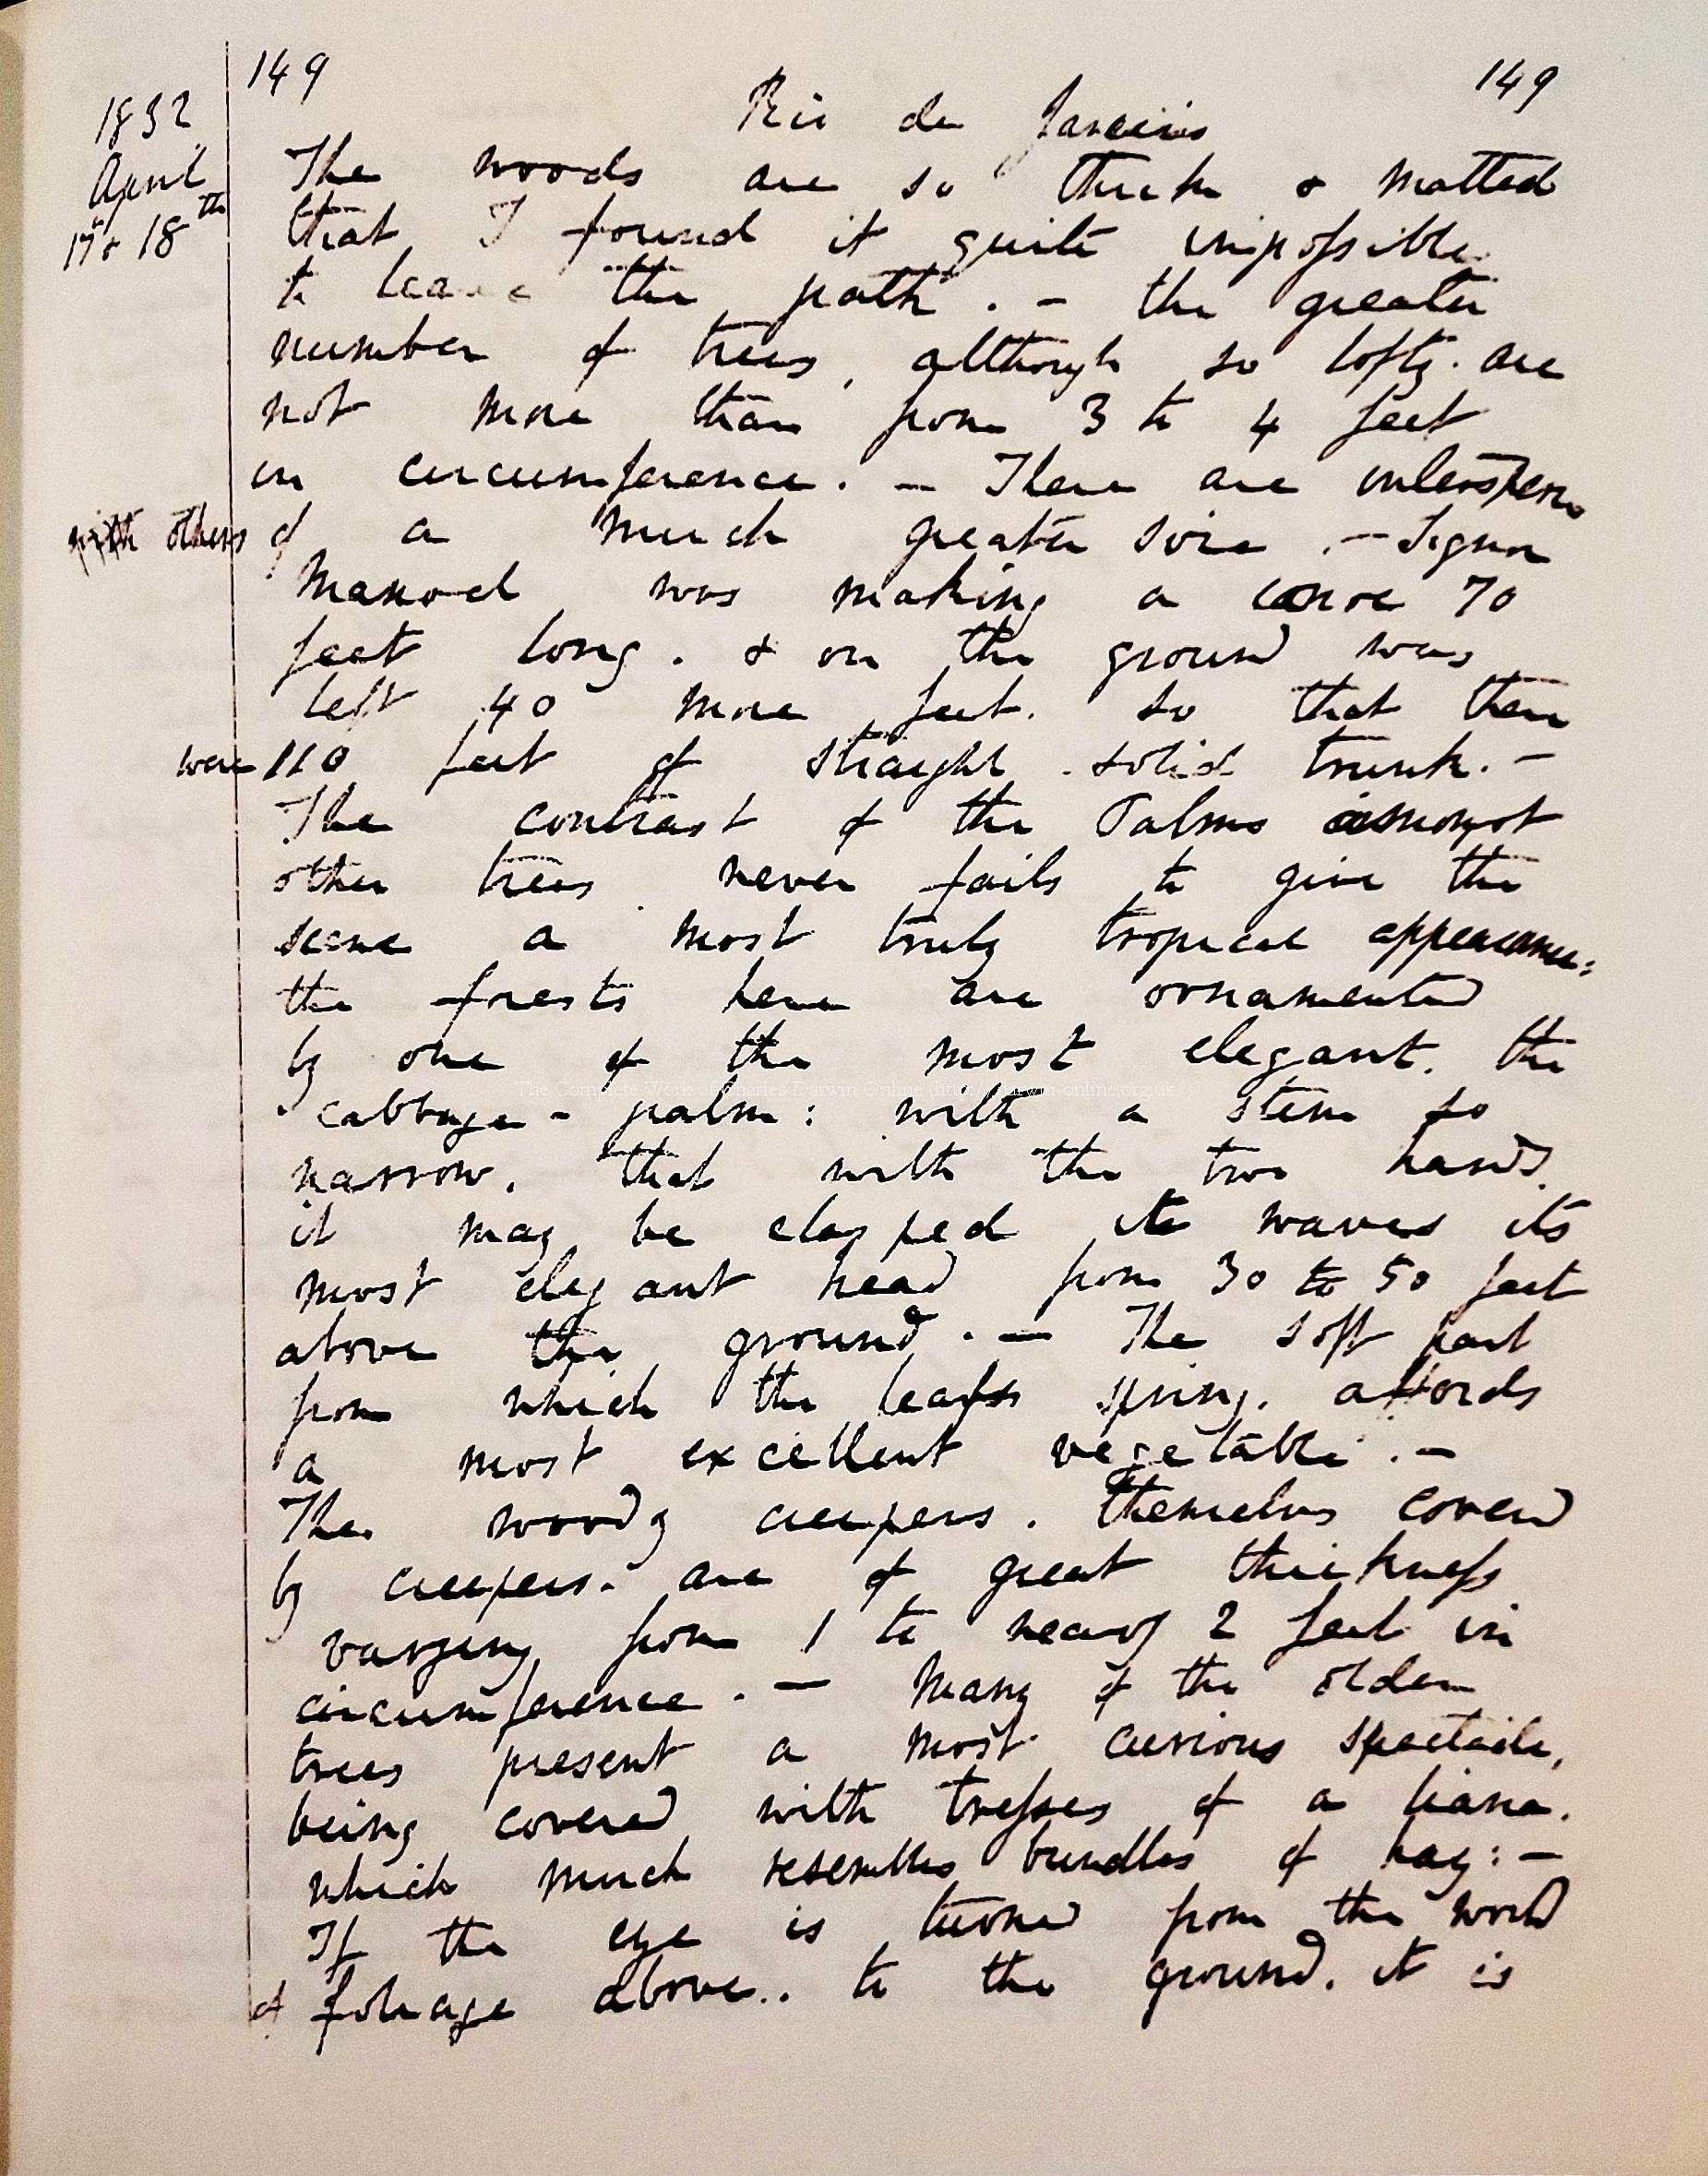 149 149
1832 Rio de Janeiro
April The woods are so thick & matted
17th & 18th that I found it quite impossible
to leave the path. — the greater
number of trees, although so lofty. are
not more than from 3 to 4 feet
in circumference. — There are interspersed
with others of a much greater size. — Signor
Manoel was making a canoe 70
feet long. & on the ground was
left 40 more feet. so that there
were 110 feet of straight solid trunk. —
The contrast of the Palms amongst
other trees never fails to give the
scene a most truly tropical appearance:
the forests here are ornamented
by one of the most elegant. the
cabbage-palm: with a stem so
narrow, that with the two hands
it may be clasped it waves its
most elegant head from 30 to 50 feet
above the ground. — The soft part
from which the leafs spring. affords
a most excellent vegetable. —
The woody creepers. themselves covered
by creepers. are of great thickness
varying from 1 to nearly 2 feet in
circumference. — Many of the older
trees present a most curious spectacle,
being covered with tresses of a liana.
which much resembles bundles of hay: —
If the eye is turned from the world
of foliage above.. to the ground. it is